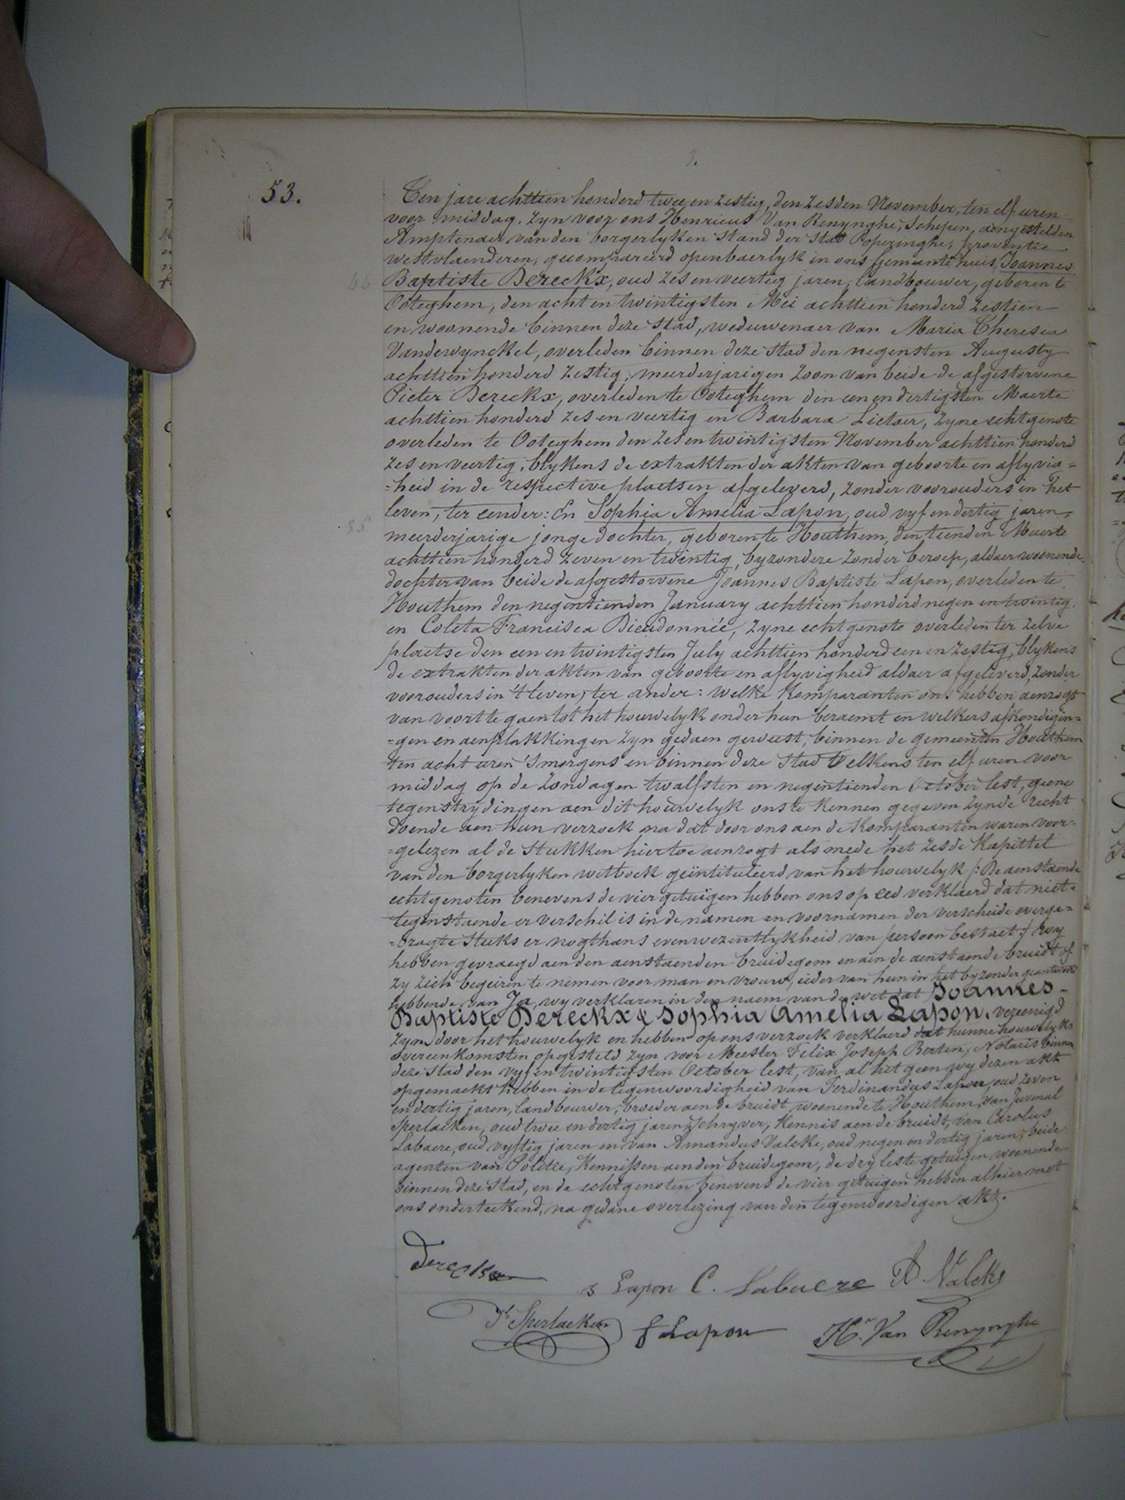 53.
Ten jare achttien honderd twee en zestig, den zesden November, ten elf uren
voor middag, zyn voor ons Henricus Van Renynghe, Schepen, aengestelden
Amptenaer van den borgerlyken stand der Stad Poperinghe, provintie
westvlaenderen, gecompareerd openbaerlyk in ons Gemeente huis, Joannes
Baptiste Dereckx, oud zes en veertig jaren, landbouwer, geboren te
Ooteghem, den acht en twintigsten Mei achttien honderd zestien
en woonende binnen deze stad, weduwenaer van Maria Theresia
Vandewynckel, overleden binnen deze stad den negensten Augusty
achttien honderd zestig, meerderjarigen zoon van beide de afgestorvene
Pieter Dereckx, overleden te Ooteghem den een en dertigsten Maerte
achttien honderd zes en veertig en Barbara Lietaer, zyne echtgenote
overleden te Ooteghem den zes en twintigsten November achttien honderd
zes en veertig, blykens de extrakten der akten van geboorte en aflyvig=
=heid in de respective plaetsen afgeleverd, zonder voorouders in het
leven, ter eender: En Sophia Amelia Lapon, oud vyf en dertig jaren,
meerderjarige jonge dochter, geboren te Houthem, den tienden Maerte
achttien honderd zeven en twintig, byzondere zonder beroep, aldaer woonende
dochter van beide de afgestorvene Joannes Baptiste Lapon, overleden te
Houthem den negentienden January achttien honderd negen en twintig,
en Coleta Francisca Dieudonnée, zyne echtgenote overleden ter zelve
plaetse den een en twintigsten July achttien honderd een en zestig, blykens
de extrakten der akten van geboorte en aflyvigheid aldaer afgeleverd, zonder
voorouders in 't leven, ter ander: welke Komparanten ons hebben aenzogt
van voort te gaen tot het houwelyk onder hun beraemt en welkers afkondigin=
=gen en aenplakkingen zyn gedaen geweest, binnen de gemeenten Houthem
ten acht uren 's morgens en binnen deze Stad telkens ten elf uren voor
middag op de Zondagen twalfsten en negentienden October lest, geene
tegenstrydingen aen dit houwelyk ons te kennen gegeven zynde recht
doende aen hun verzoek na dat door ons aen de Komparanten waren voor=
=gelezen al de stukken hiertoe aenzogt als mede het zesde Kapittel
van den borgerlyken wetboek geïntituleerd van het houwelyk /: De aenstaende
echtgenoten benevens de vier getuigen hebben ons op eed verklaerd dat niet
tegenstaende er verschil is in de namen en voornamen der verscheide overge=
=bragte stuks er nogthans evenwezentlykheid van persoon bestaet :/ wy
hebben gevraegd aen den aenstaenden bruidegom en aen de aenstaende bruidt of
zy zich begeeren te nemen voor man en vrouw, ieder van hun in het byzonder geantwoord
hebbende, van Ja, wy verklaren in den naem van de wet dat Joannes
Baptiste Dereckx & Sophia Amelia Lapon, vereenigd
zyn door het houwelyk en hebben op ons verzoek verklaerd dat hunne houwelyks
overeenkomsten opgesteld zyn voor Meester Felix Joseph Berten, Notaris binnen
deze stad den vyf en twintigsten October lest, van al het geen wy dezen akt
opgemaekt hebben in de tegenwoordigheid van Ferdinandus Lapon, oud zeven
en dertig jaren, landbouwer, broeder aen de bruidt, woonende te Houthem, van Juvenal
Sperlaeken, oud twee en dertig jaren, schryver, kennis aen de bruidt, van Carolus
Labaere, oud vyftig jaren en van Amandus Valcke, oud negen en dertig jaren, beide
agenten van Politie, Kennissen aen den bruidegom, de dry leste getuigen woonende
binnen deze Stad, en de echtgenoten benevens de vier getuigen hebben alhier met
ons onderteekend, na gedane overlezing van den tegenwoordigen akt.
Dereckx
S Lapon C. Labaere A Valcke
J. Sperlaeken F Lapon H. Van Renynghe